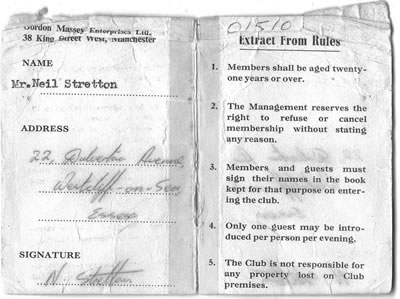 Gordon Massey Enterprises Ltd.
38 King Street West, Manchester
NAME
Mr. Neil Stretton
ADDRESS
22,
Westcliff-on-Sea
Essex
SIGNATURE
N. Stretton
01510
Extract From Rules
1. Members shall be aged twenty-
one years or over.
2. The Management reserves the
right to refuse or cancel
membership without stating
any reason.
3. Members and guests must
sign their names in the book
kept for that purpose on enter-
ing the club.
4. Only one guest may be intro-
duced per person per evening.
5. The Club is not responsible for
any property lost on Club
premises.